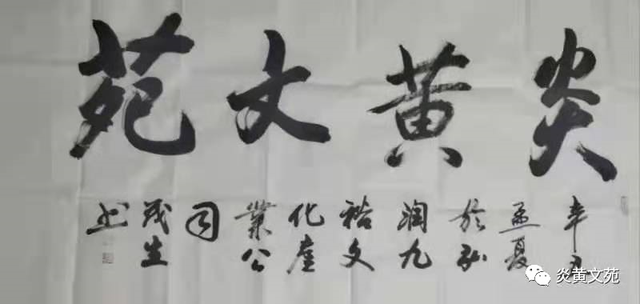 炎黄文苑
辛丑
孟夏
於弘
润九
裕文
化產
業公
司
茂生
书
炎黄文苑